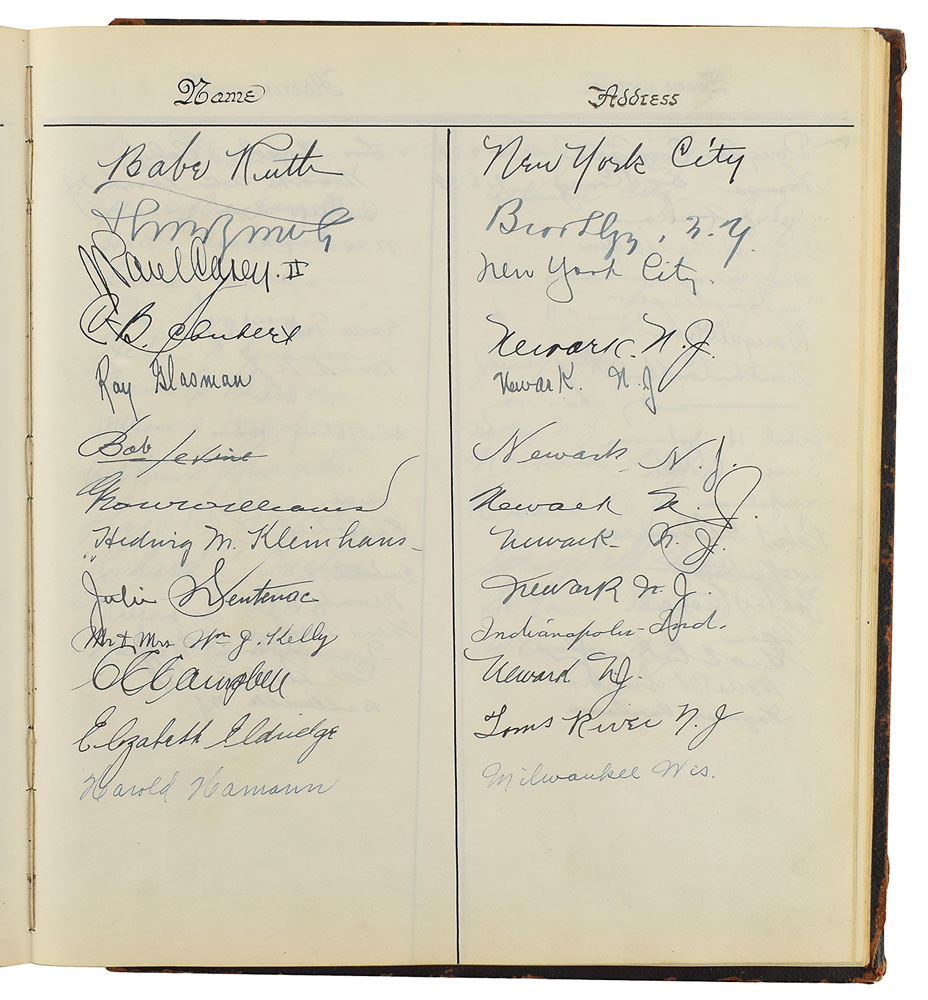 Name Address
Babe Ruth New York City
Brooklyn, N.Y.
Carey. II New York City.
C.B. Newark. N.J.
Ray Glasman Newark. N.J
Bob Levine Newark N.J.
Williams Newark N.J.
Hedwig M. Kleinhans Newark N.J.
Julie Newark N.J.
Mr & Mrs Wm J. Kelly Indianapolis Ind.
Campbell Newark NJ.
Elizabeth Eldridge Toms River N.J
Harold Hamann Milwaukee Wis.